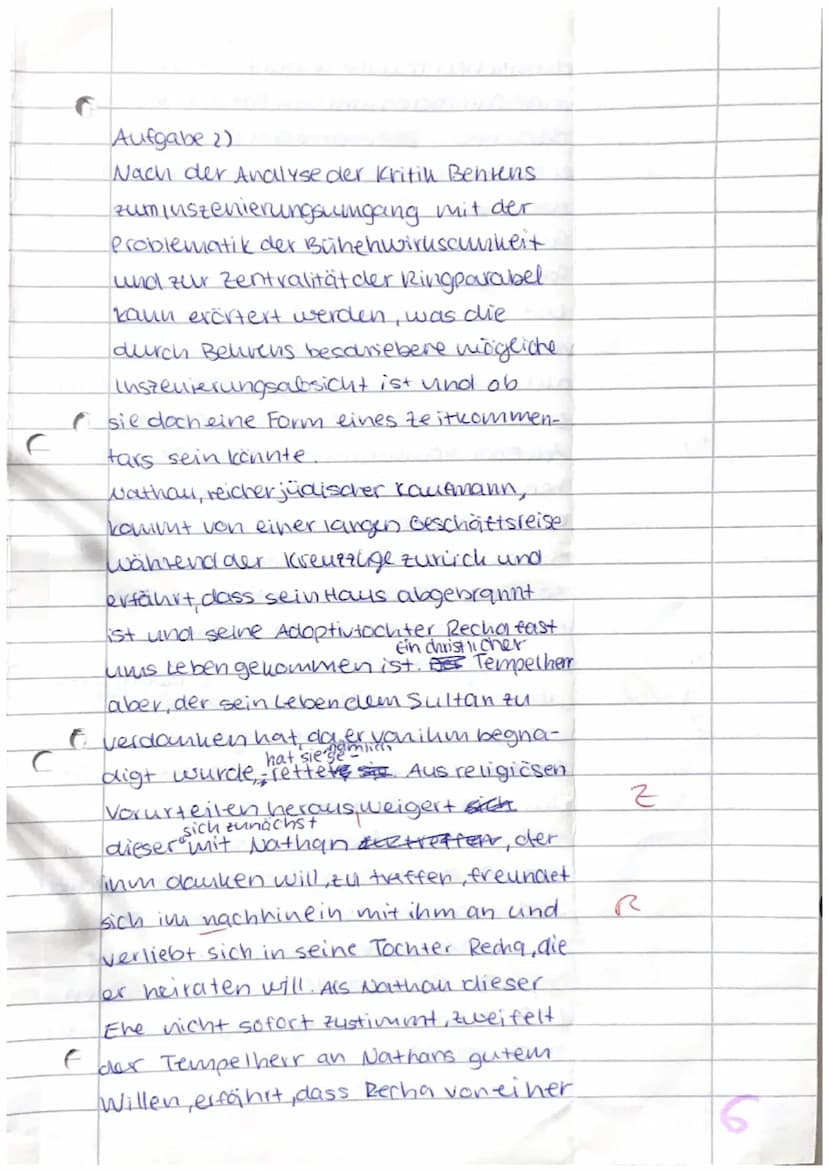 Aufgabe 2)
Nach der Analyse der Kritik Behrens
zum Inszenierungsumgang mit der
Problematik der Bühenwirksamkeit
und zur Zentralität der Ringparabel
kann erörtert werden, was die
durch Behrens beschriebene mögliche
Inszenierungsabsicht ist und ob
sie doch eine Form eines Zeitkommen-
tars sein könnte.
Nathan, reicher jüdischer Kaufmann,
kommt von einer langen Geschäftsreise
während der Kreuzzüge zurück und
erfährt, dass sein Haus abgebrannt
ist und seine Adoptivtochter Recha fast
Ein christlicher
ums Leben gekommen ist. Tempelherr
aber, der sein Leben dem Sultan zu
verdanken hat, da er von ihm begna-
hat sie nämlich ge-
digt wurde, rettet. Aus religiösen
Vorurteilen heraus, weigert sich
Z
sich zunächst
dieser mit Nathan zu treffen, der
ihm danken will, zu treffen, freundet
sich im nachhinein mit ihm an und
R
verliebt sich in seine Tochter Recha, die
er heiraten will. Als Nathan dieser
Ehe nicht sofort zustimmt, zweifelt
der Tempelherr an Nathans gutem
Willen, erfährt, dass Recha von einer
6